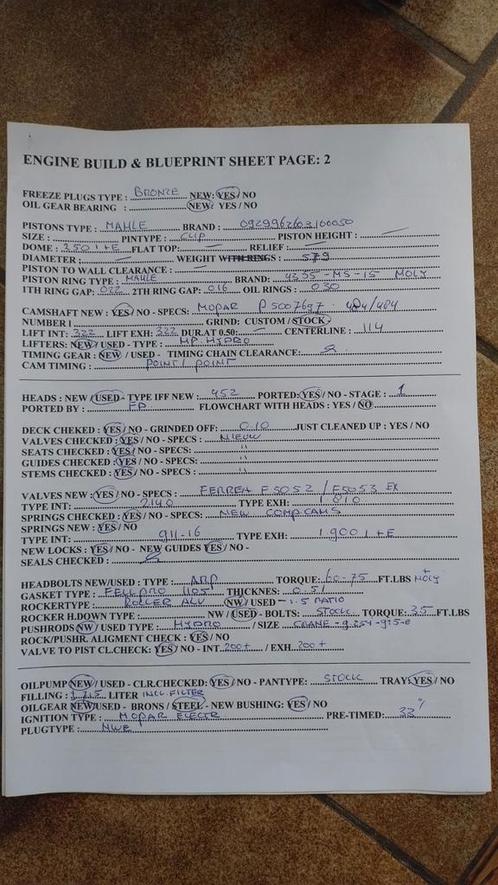 ENGINE BUILD & BLUEPRINT SHEET PAGE: 2
FREEZE PLUGS TYPE : BRONZE NEW: YES / NO
OIL GEAR BEARING : NEW: YES / NO
PISTONS TYPE : MAHLE BRAND :
SIZE : PINTYPE : CLIP PISTON HEIGHT :
DOME : 3.50 I+E FLAT TOP: RELIEF :
DIAMETER : WEIGHT WITH RINGS : 579
PISTON TO WALL CLEARANCE :
PISTON RING TYPE : MAHLE BRAND: 4355-MS-15 MOLY
1TH RING GAP: 022 2TH RING GAP: 016 OIL RINGS : 030
CAMSHAFT NEW : YES / NO - SPECS: MOPAR P5007697 · 484/484
NUMBER I GRIND: CUSTOM / STOCK
LIFT INT: 322 LIFT EXH: 322 DUR.AT 0.50: CENTERLINE : 114
LIFTERS: NEW / USED - TYPE : MP HIDRO
TIMING GEAR : NEW / USED - TIMING CHAIN CLEARANCE:
CAM TIMING : POINT / POINT
HEADS : NEW / USED - TYPE IFF NEW : 452 PORTED: YES / NO - STAGE : 1
PORTED BY : FP FLOWCHART WITH HEADS : YES / NO
DECK CHEKED : YES / NO - GRINDED OFF: 0.10 JUST CLEANED UP : YES / NO
VALVES CHECKED : YES / NO - SPECS : NIEUW
SEATS CHECKED : YES / NO - SPECS: "
GUIDES CHECKED : YES / NO - SPECS: "
STEMS CHECKED : YES / NO - SPECS : "
VALVES NEW : YES / NO - SPECS : FERREA F5052 / F5053 EX
TYPE INT: 2140 TYPE EXH: 1810
SPRINGS CHECKED : YES / NO - SPECS: NEW COMP CAMS
SPRINGS NEW : YES / NO
TYPE INT: 911-16 TYPE EXH: 1900 I+E
NEW LOCKS : YES / NO - NEW GUIDES YES / NO -
SEALS CHECKED :
HEADBOLTS NEW/USED : TYPE : ARP TORQUE: 60-75 FT.LBS MOLY
GASKET TYPE : FELLPRO 1105 THICKNES: 0.51
ROCKERTYPE : ROLLER ALU NW / USED - 1.5 RATIO
ROCKER H.DOWN TYPE : NW / USED - BOLTS: STOCK TORQUE: 35 FT.LBS
PUSHRODS NW / USED TYPE : HYDRO / SIZE :
ROCK/PUSHR. ALIGMENT CHECK : YES / NO
VALVE TO PIST CL.CHECK: YES / NO - INT. 200+ / EXH. 200+
OILPUMP NEW / USED - CLR.CHECKED: YES / NO - PANTYPE: STOCK TRAY: YES / NO
FILLING : LITER INCL. FILTER
OILGEAR NEW/USED - BRONS / STEEL - NEW BUSHING: YES / NO
IGNITION TYPE : MOPAR ELECTR PRE-TIMED: 33°
PLUGTYPE :